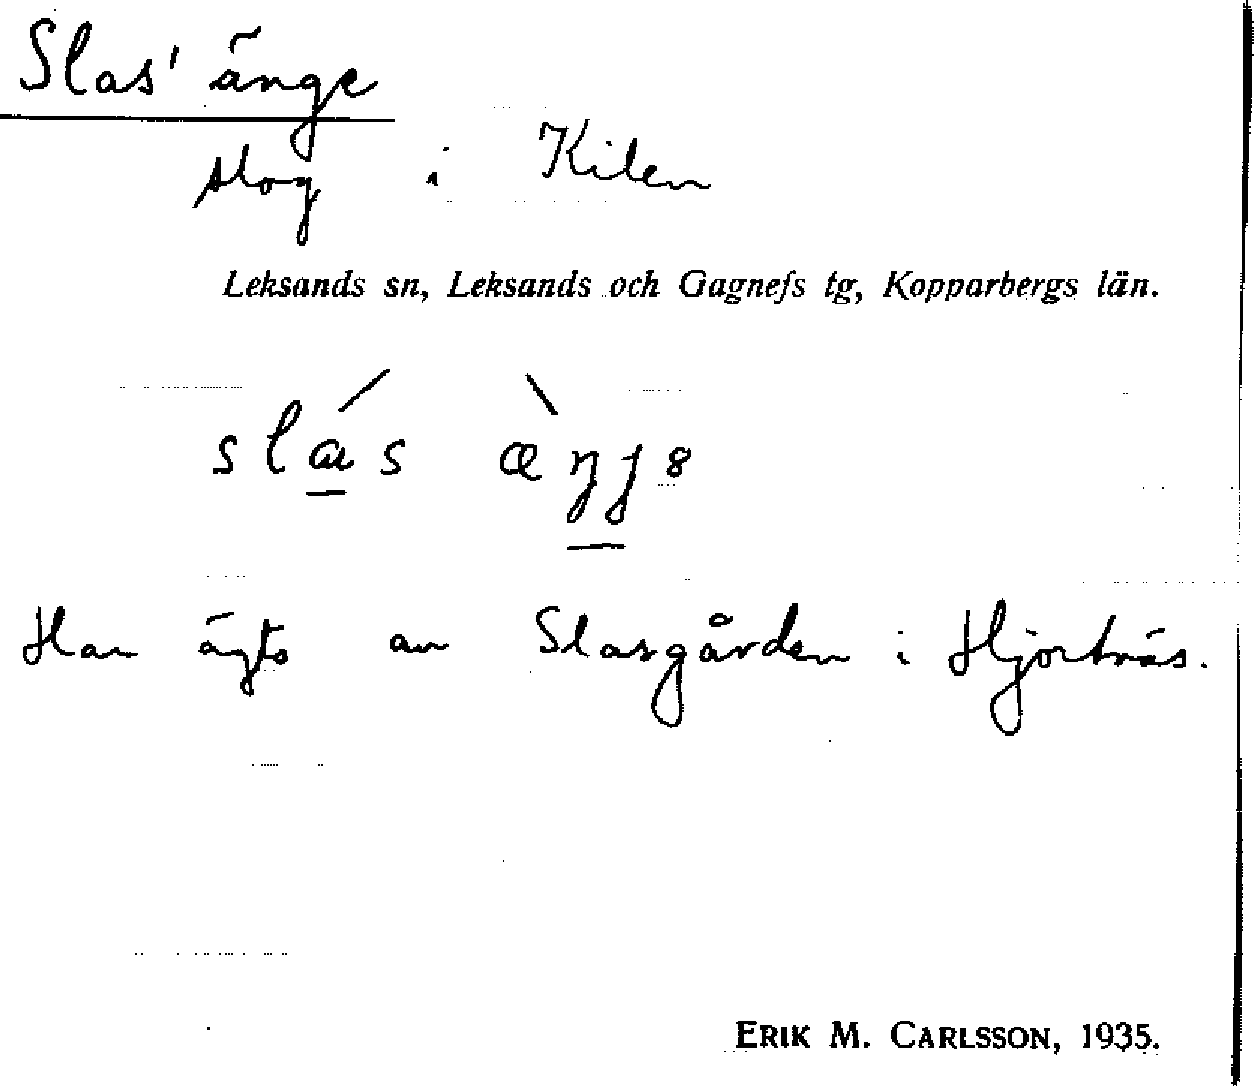 Slas' änge
slog i Kilen
Leksands sn, Leksands och Gagnefs tg, Kopparbergs län.
Har ägts av Slasgården i Hjortnäs.
ERIK M. CARLSSON, 1935.